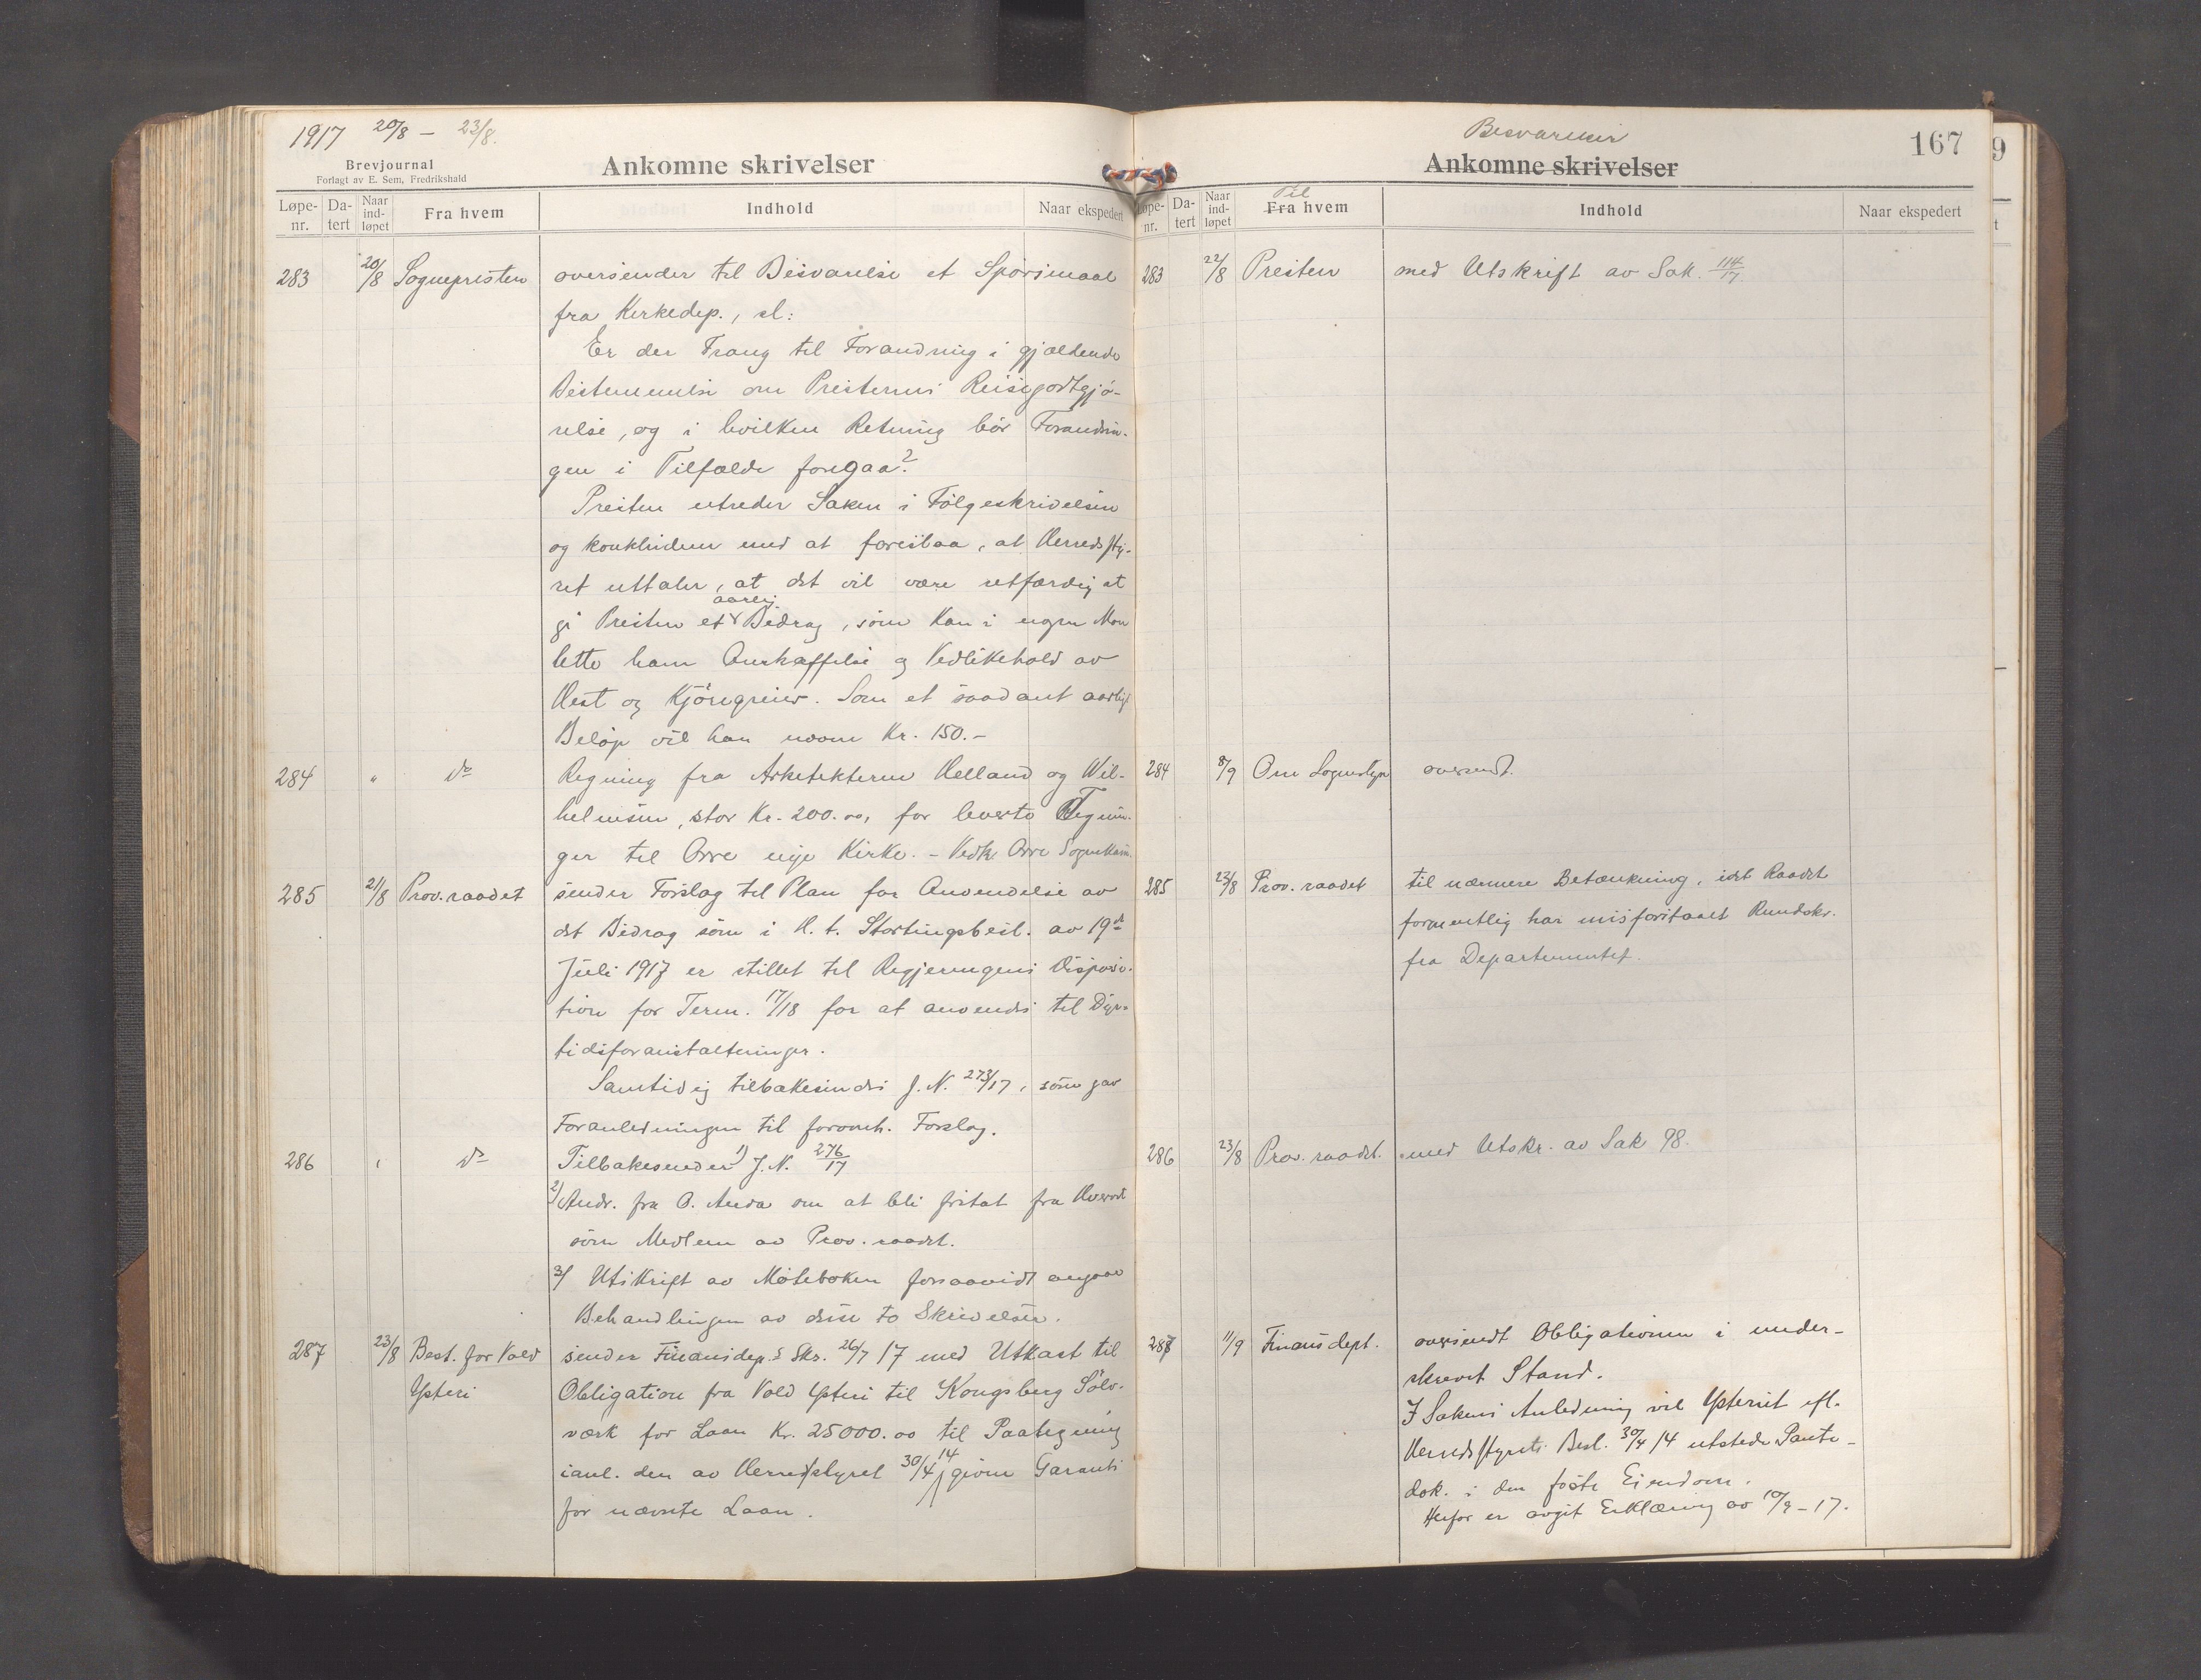 1917 20/8 – 23/8.
Brevjournal
Forlagt av E. Sem, Fredrikshald
Ankomne skrivelser
Løpe-nr. Da-tert Naar ind-løpet Fra hvem Indhold Naar ekspedert
283 20/8 Sognepresten oversender til Besvarelse et Spörsmaal
fra Kirkedep., sl:
Er der Trang til Forandring i gjældende
Bestemmelse om Presternes Reisegodtgjö-
relse, og i hvilken Retning bör Forandrin-
gen i Tilfælde foregaa?
Presten utreder Saken i Fölgeskrivelsen
og konkluderer med at foreslaa, at Herredssty-
ret uttaler, at det vil være retfærdig at
gi Presten et aarlig Bidrag, som kan i nogen Mon
lette ham Anskaffelse og Vedlikehold av
Hest og Kjöregreier. Som et saadant aarlig
Belöp vil han nævne Kr. 150.–
284 " do Regning fra Arkitekterne Helland og Wil-
helmsen, stor Kr. 200.00, for leverte Tegnin-
ger til Orre nye Kirke. – Vedk. Orre Sognekom.
285 21/8 Prov.raadet sender Forslag til Plan for Anvendelse av
det Bidrag som i H. t. Stortingsbesl. av 19de
Juli 1917 er stillet til Regjeringens Disposi-
tion for Term. 17/18 for at anvendes til Dyr-
tidsforanstaltninger.
Samtidig tilbakesendes J.N. 273/17, som gav
Foranledningen til forannh. Forslag.
286 " do Tilbakesender 1) J.N. 276/17
2) Andr. fra O. Anda om at bli fritat fra Hvervet
som Medlem av Prov.raadet.
3) Utskrift av Möteboken forsaavidt angaar
Behandlingen av disse to Skrivelser.
287 23/8 Best. for Vold sender Finansdep.s Skr. 26/7 17 med Utkast til
Ysteri Obligation fra Vold Ysteri til Kongsberg Sölv-
værk for Laan Kr. 25000.00 til Paategning
ianl. den av Herredsstyret 30/4 14 givne Garanti
for nævnte Laan.
Besvarelser
167
Ankomne skrivelser
Løpe-nr. Da-tert Naar ind-løpet Til Fra hvem Indhold Naar ekspedert
283 22/8 Presten med Utskrift av Sak. 114/17.
284 8/9 Orre Sognestyre oversendt.
285 23/8 Prov.raadet til nærmere Betænkning, idet Raadet
formentlig har misforstaaet Rundskr.
fra Departementet.
286 23/8 Prov.raadet. med Utskr. av Sak 98.
287 11/9 Finansdept. oversendt Obligationen i under-
skrevet Stand.
I Sakens Anledning vil Ysteriet efl.
Herredsstyrets Besl. 30/4 14 utstede Pante-
dok. i den faste Eiendom.
Herfor er avgit Erklæring av 10/9 – 17.